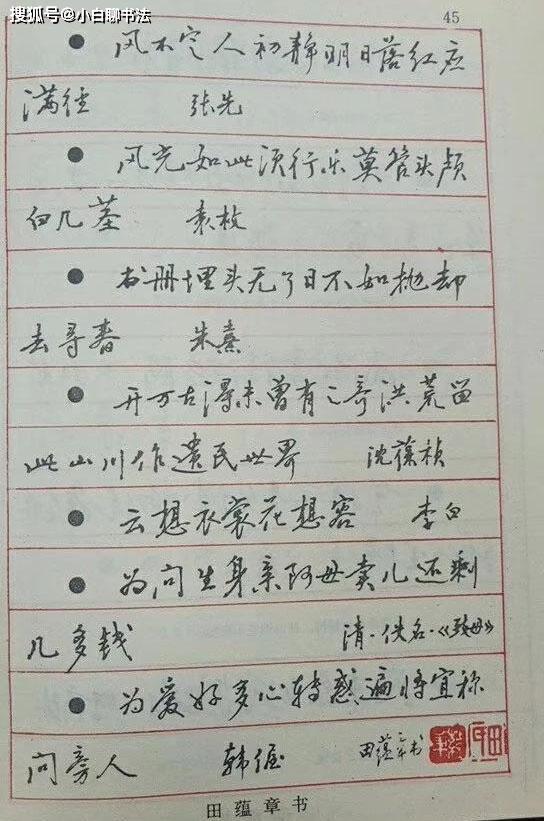 搜狐号@小白聊书法
45
风不定人初静明日落红应
满径 张先
风光如此须行乐莫管头颅
白几茎 袁枚
书册埋头无了日不如抛却
去寻春 朱熹
开万古得未曾有之奇洪荒留
此山川作遗民世界 沈葆桢
云想衣裳花想容 李白
为问生身亲阿母卖儿还剩
几多钱 清·佚名·《致母》
为爱好多心转惑遍将宜称
问旁人 韩偓 田蕴章书
田蕴章书